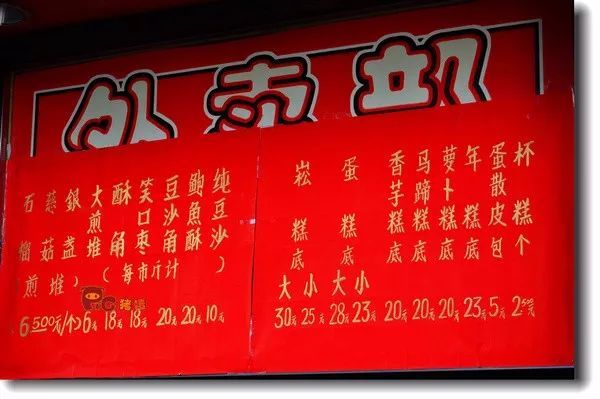 外卖部
石榴煎堆
慈菇
銀盏
大煎堆
酥角
笑口枣
豆沙角
鲍鱼酥
纯豆沙
(每市斤计)
6 500元/个 6元 18元 18元 20元 20元 10元
崧糕底 大 小
蛋糕底 大 小
香芋糕底
马蹄糕底
萝卜糕底
年糕底
蛋散皮包
杯糕个
30元 25元 28元 23元 20元 20元 20元 23元 5元 2.50元